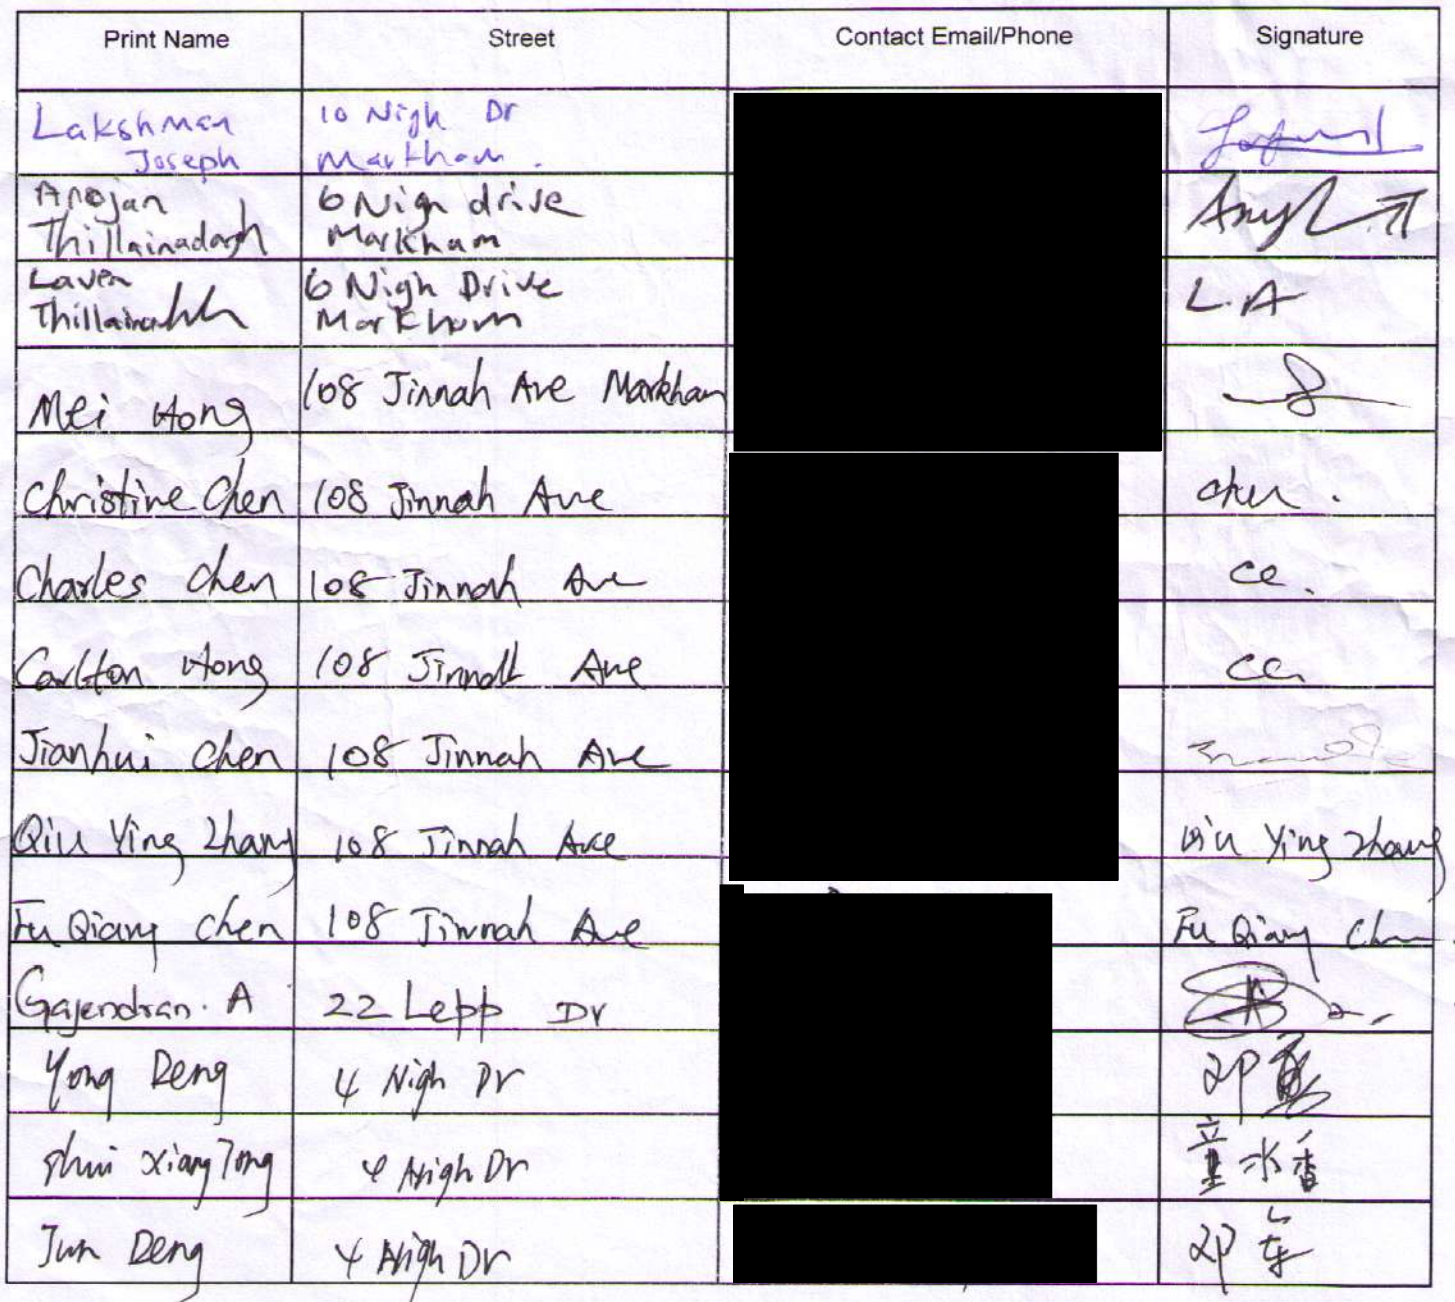 Print Name Street Contact Email/Phone Signature
Lakshman 10 Nigh Dr
Joseph Markham.
Anojan 6 Nigh drive
Markham
Laven 6 Nigh Drive L.A
Markham
Mei Hong 108 Jinnah Ave Markham
Christine Chen 108 Jinnah Ave Chen.
Charles Chen 108 Jinnah Ave CC
Carlton Hong 108 Jinnah Ave CC
Jianhui Chen 108 Jinnah Ave
Qiu Ying Zhang 108 Jinnah Ave Qiu Ying Zhang
Fu Qiang Chen 108 Jinnah Ave Fu Qiang Chen
Gajendran. A 22 Lepp Dr
Yong Deng 4 Nigh Dr 邓勇
Shui Xiang Tong 4 Nigh Dr 童水香
Jun Deng 4 Nigh Dr 邓军